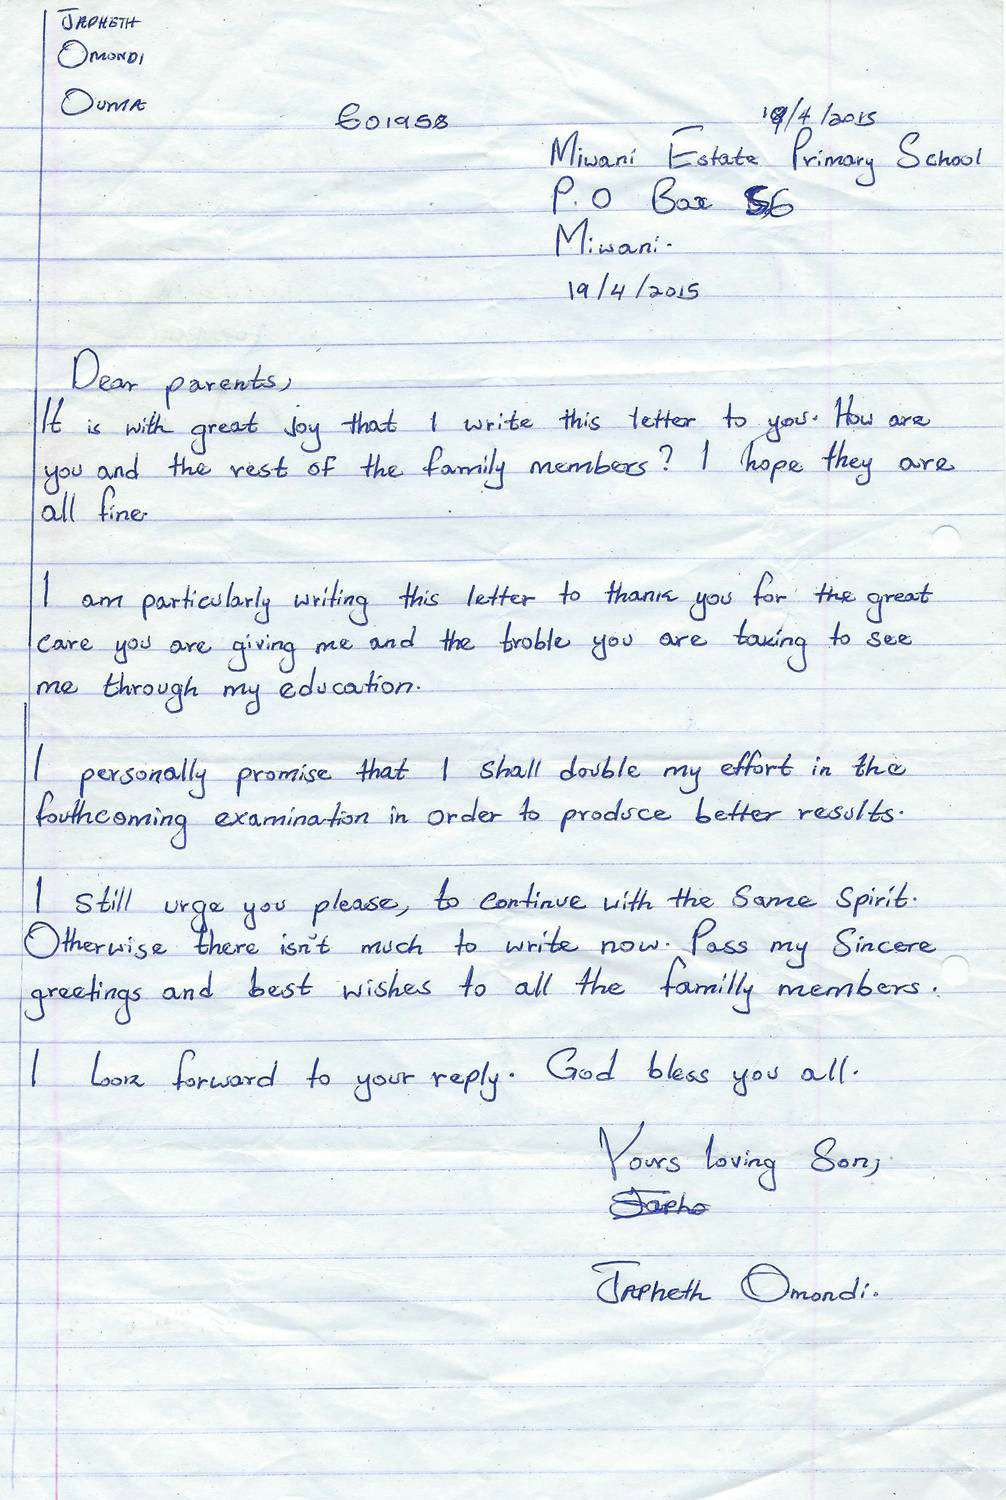 JAPHETH
OMONDI
OUMA
601958
19/4/2015
Miwani Estate Primary School
P.O Box 56
Miwani.
19/4/2015
Dear parents,
It is with great joy that I write this letter to you. How are
you and the rest of the family members? I hope they are
all fine.
I am particularly writing this letter to thank you for the great
care you are giving me and the troble you are taking to see
me through my education.
I personally promise that I shall double my effort in the
fouthcoming examination in order to produce better results.
I still urge you please, to continue with the same spirit.
Otherwise there isn't much to write now. Pass my Sincere
greetings and best wishes to all the familly members.
I look forward to your reply. God bless you all.
Yours loving Son,
Japho
Japheth Omondi.